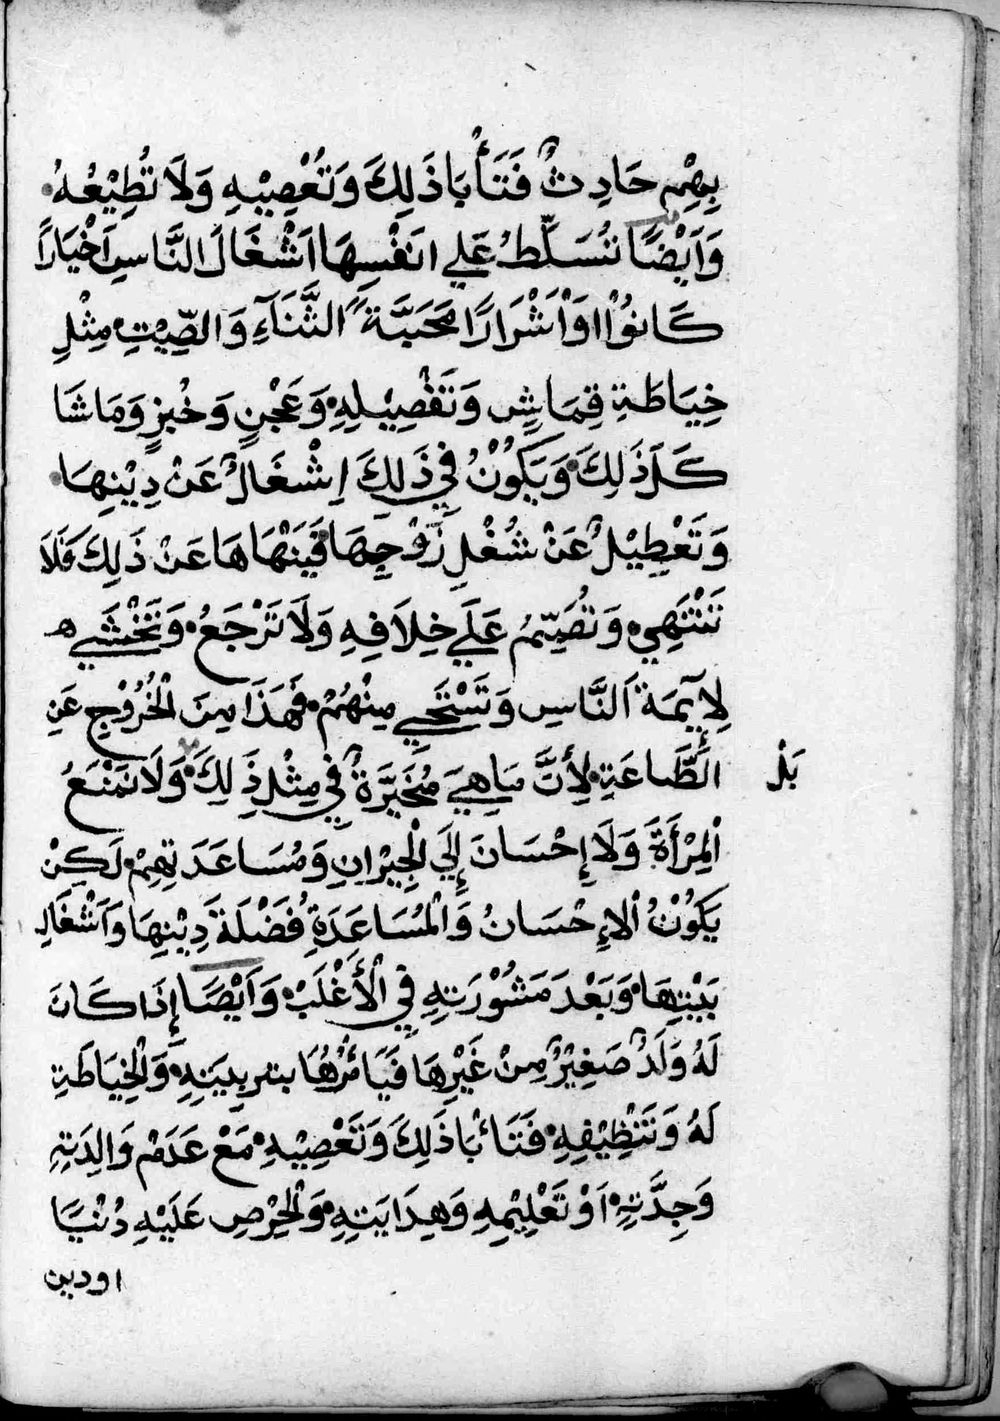 بِهِمْ حَادِثٌ فَتَأْبَا ذَلِكَ وَتُعْصِيْهِ وَلَا تُطِيْعُهُ
وَاَيْضًا تُسَلِّطُ عَلي انَفْسِهَا اَشْغَالَ النَّاسِ اَخْيَارًا
كَانُوْا اَوْ اَشْرَارًا مَحَبَّةً الثَّنَآءِ وَالصِّيْتِ مِثْلِ
خِيَاطَةِ قِمَاشٍ وَتَفْصِيْلِهِ وَعَجْنٍ وَخُبْزٍ وَمَا شَا
كَلَ ذَلِكَ وَيَكُوْنُ فِي ذَلِكَ اِشْغَالٌ عَنْ دِيْنِهَا
وَتَعْطِيْلٌ عَنْ شُغْلِ زَوْجِهَا فَيَنْهَاهَا عَنْ ذَلِكَ فَلَا
تَنْتَهِي وَتُصَمِّمُ عَلَي خِلَافِهِ وَلَا تَرْجَعُ وَتَخْشَي
لِايِمَةَ النَّاسِ وَتَسْتَحِي مِنْهُمْ فَهَذَا مِنَ الْخُرُوْجِ عَنِ
الطَّاعَةِ لِأَنَّ مَاهِيَ مُخَيَّرَةٌ فِي مِثْلِ ذَلِكَ وَلَا نَمْنَعُ
بَلْ
الْمِرْأَةَ وَلَا إِحْسَانَ إِلَي الْجِيْرَانِ وَمُسَاعَدَتِهِمْ لَكِنْ
يَكُوْنُ الْاِحْسَانُ وَالْمُسَاعَدَةِ فُضْلَةَ دِيْنِهَا وَاَشْغَالِ
بَيْتِهَا وَبَعْدَ مَشُوْرَتِهِ فِي الْأَغْلَبْ وَاَيْضًا إِذَا كَانَ
لَهُ وَلَدٌ صَغِيْرٌ مِنْ غَيْرِهَا فَيَأمُرُهَا بتربِيَتِهِ وَالْخِيَاطَةِ
لَهُ وَتَنْظِيْفِهِ فَتَائْبَا ذَلِكَ وَتَعْصِيْهِ مَعْ عَدَمْ وَالِدَتِهِ
وَجِدَّتِهِ اَوْ تَعْلِيْمِهِ وَهِدَايَتِهِ وَالْحِرْصِ عَلَيْهِ دُنْيَا
اودين